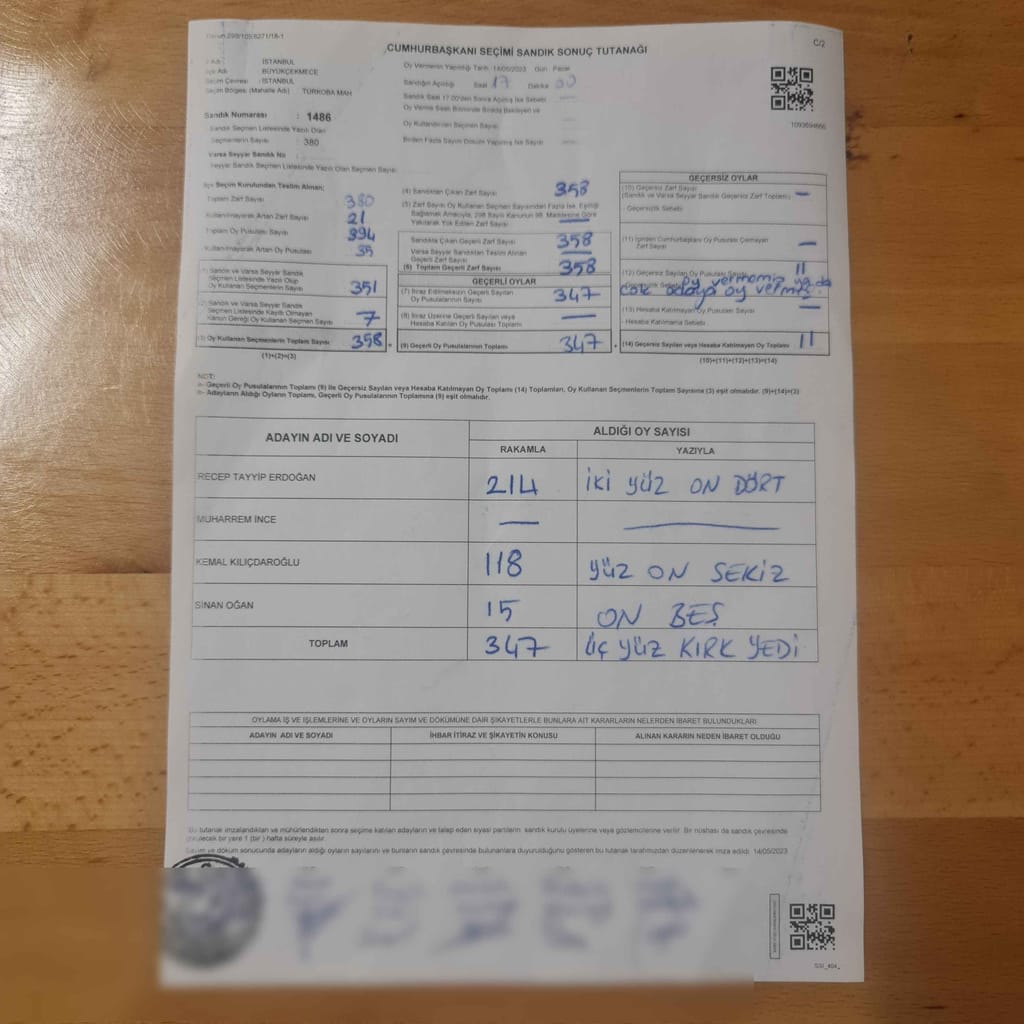 CUMHURBAŞKANI SEÇİMİ SANDIK SONUÇ TUTANAĞI
C/2
İSTANBUL
BÜYÜKÇEKMECE
Seçim Çevresi : İSTANBUL
Seçim Bölgesi (Mahalle Adı) TÜRKOBA MAH
Oy Vermenin Yapıldığı Tarih: 14/05/2023 Gün: Pazar
Sandığın Açıldığı Saat 17 Dakika
Sandık Numarası : 1486
Sandık Seçmen Listesinde Yazılı Olan
Seçmenlerin Sayısı : 380
Varsa Seyyar Sandık No
Seyyar Sandık Seçmen Listesinde Yazılı Olan Seçmen Sayısı
İlçe Seçim Kurulundan Teslim Alınan;
Toplam Zarf Sayısı : 380
Kullanılmayarak Artan Zarf Sayısı : 21
Toplam Oy Pusulası Sayısı : 394
Kullanılmayarak Artan Oy Pusulası : 35
(1) Sandık ve Varsa Seyyar Sandık
Seçmen Listesinde Yazılı Olup
Oy Kullanan Seçmenlerin Sayısı 351
(2) Sandık ve Varsa Seyyar Sandık
Seçmen Listesinde Kayıtlı Olmayan
Kanun Gereği Oy Kullanan Seçmen Sayısı 7
(3) Oy Kullanan Seçmenlerin Toplam Sayısı 358
(1)+(2)=(3)
(4) Sandıktan Çıkan Zarf Sayısı 358
(5) Zarf Sayısı Oy Kullanan Seçmen Sayısından Fazla İse, Eşitliği
Bağlamak Amacıyla, 298 Sayılı Kanunun 98. Maddesine Göre
Yakılarak Yok Edilen Zarf Sayısı
Sandıkta Çıkan Geçerli Zarf Sayısı 358
Varsa Seyyar Sandıktan Teslim Alınan
Geçerli Zarf Sayısı
(6) Toplam Geçerli Zarf Sayısı 358
GEÇERLİ OYLAR
(7) İtiraz Edilmeksizin Geçerli Sayılan
Oy Pusulalarının Sayısı 347
(8) İtiraz Üzerine Geçerli Sayılan veya
Hesaba Katılan Oy Pusulası Toplamı —
(9) Geçerli Oy Pusulalarının Toplamı 347
GEÇERSİZ OYLAR
(10) Geçersiz Zarf Sayısı
(Sandık ve Varsa Seyyar Sandık Geçersiz Zarf Toplamı) —
- Geçersizlik Sebebi
(11) İçinden Cumhurbaşkanı Oy Pusulası Çıkmayan
Zarf Sayısı —
(12) Geçersiz Sayılan Oy Pusulası Sayısı 11
oy vermemiş ya da
adaya oy vermiş.
(13) Hesaba Katılmayan Oy Pusulası Sayısı —
- Hesaba Katılmama Sebebi
(14) Geçersiz Sayılan veya Hesaba Katılmayan Oy Toplamı 11
(10)+(11)+(12)+(13)=(14)
NOT:
a- Geçerli Oy Pusulalarının Toplamı (9) ile Geçersiz Sayılan veya Hesaba Katılmayan Oy Toplamı (14) Toplamları, Oy Kullanan Seçmenlerin Toplam Sayısına (3) eşit olmalıdır. (9)+(14)=(3)
b- Adayların Aldığı Oyların Toplamı, Geçerli Oy Pusulalarının Toplamına (9) eşit olmalıdır.
ADAYIN ADI VE SOYADI
ALDIĞI OY SAYISI
RAKAMLA YAZIYLA
RECEP TAYYİP ERDOĞAN 214 İKİ YÜZ ON DÖRT
MUHARREM İNCE — —
KEMAL KILIÇDAROĞLU 118 YÜZ ON SEKİZ
SİNAN OĞAN 15 ON BEŞ
TOPLAM 347 ÜÇ YÜZ KIRK YEDİ
OYLAMA İŞ VE İŞLEMLERİNE VE OYLARIN SAYIM VE DÖKÜMÜNE DAİR ŞİKAYETLERLE BUNLARA AİT KARARLARIN NELERDEN İBARET BULUNDUKLARI
ADAYIN ADI VE SOYADI İHBAR İTİRAZ VE ŞİKAYETİN KONUSU ALINAN KARARIN NEDEN İBARET OLDUĞU
Bu tutanak imzalandıktan ve mühürlendikten sonra seçime katılan adayların ve talep eden siyasi partilerin sandık kurulu üyelerine veya gözlemcilerine verilir. Bir nüshası da sandık çevresinde
görülecek bir yere 1 (bir) hafta süreyle asılır.
Sayım ve döküm sonucunda adayların aldığı oyların sayılarını ve bunların sandık çevresinde bulunanlara duyurulduğunu gösteren bu tutanak tarafımızdan düzenlenerek imza edildi. 14/05/2023